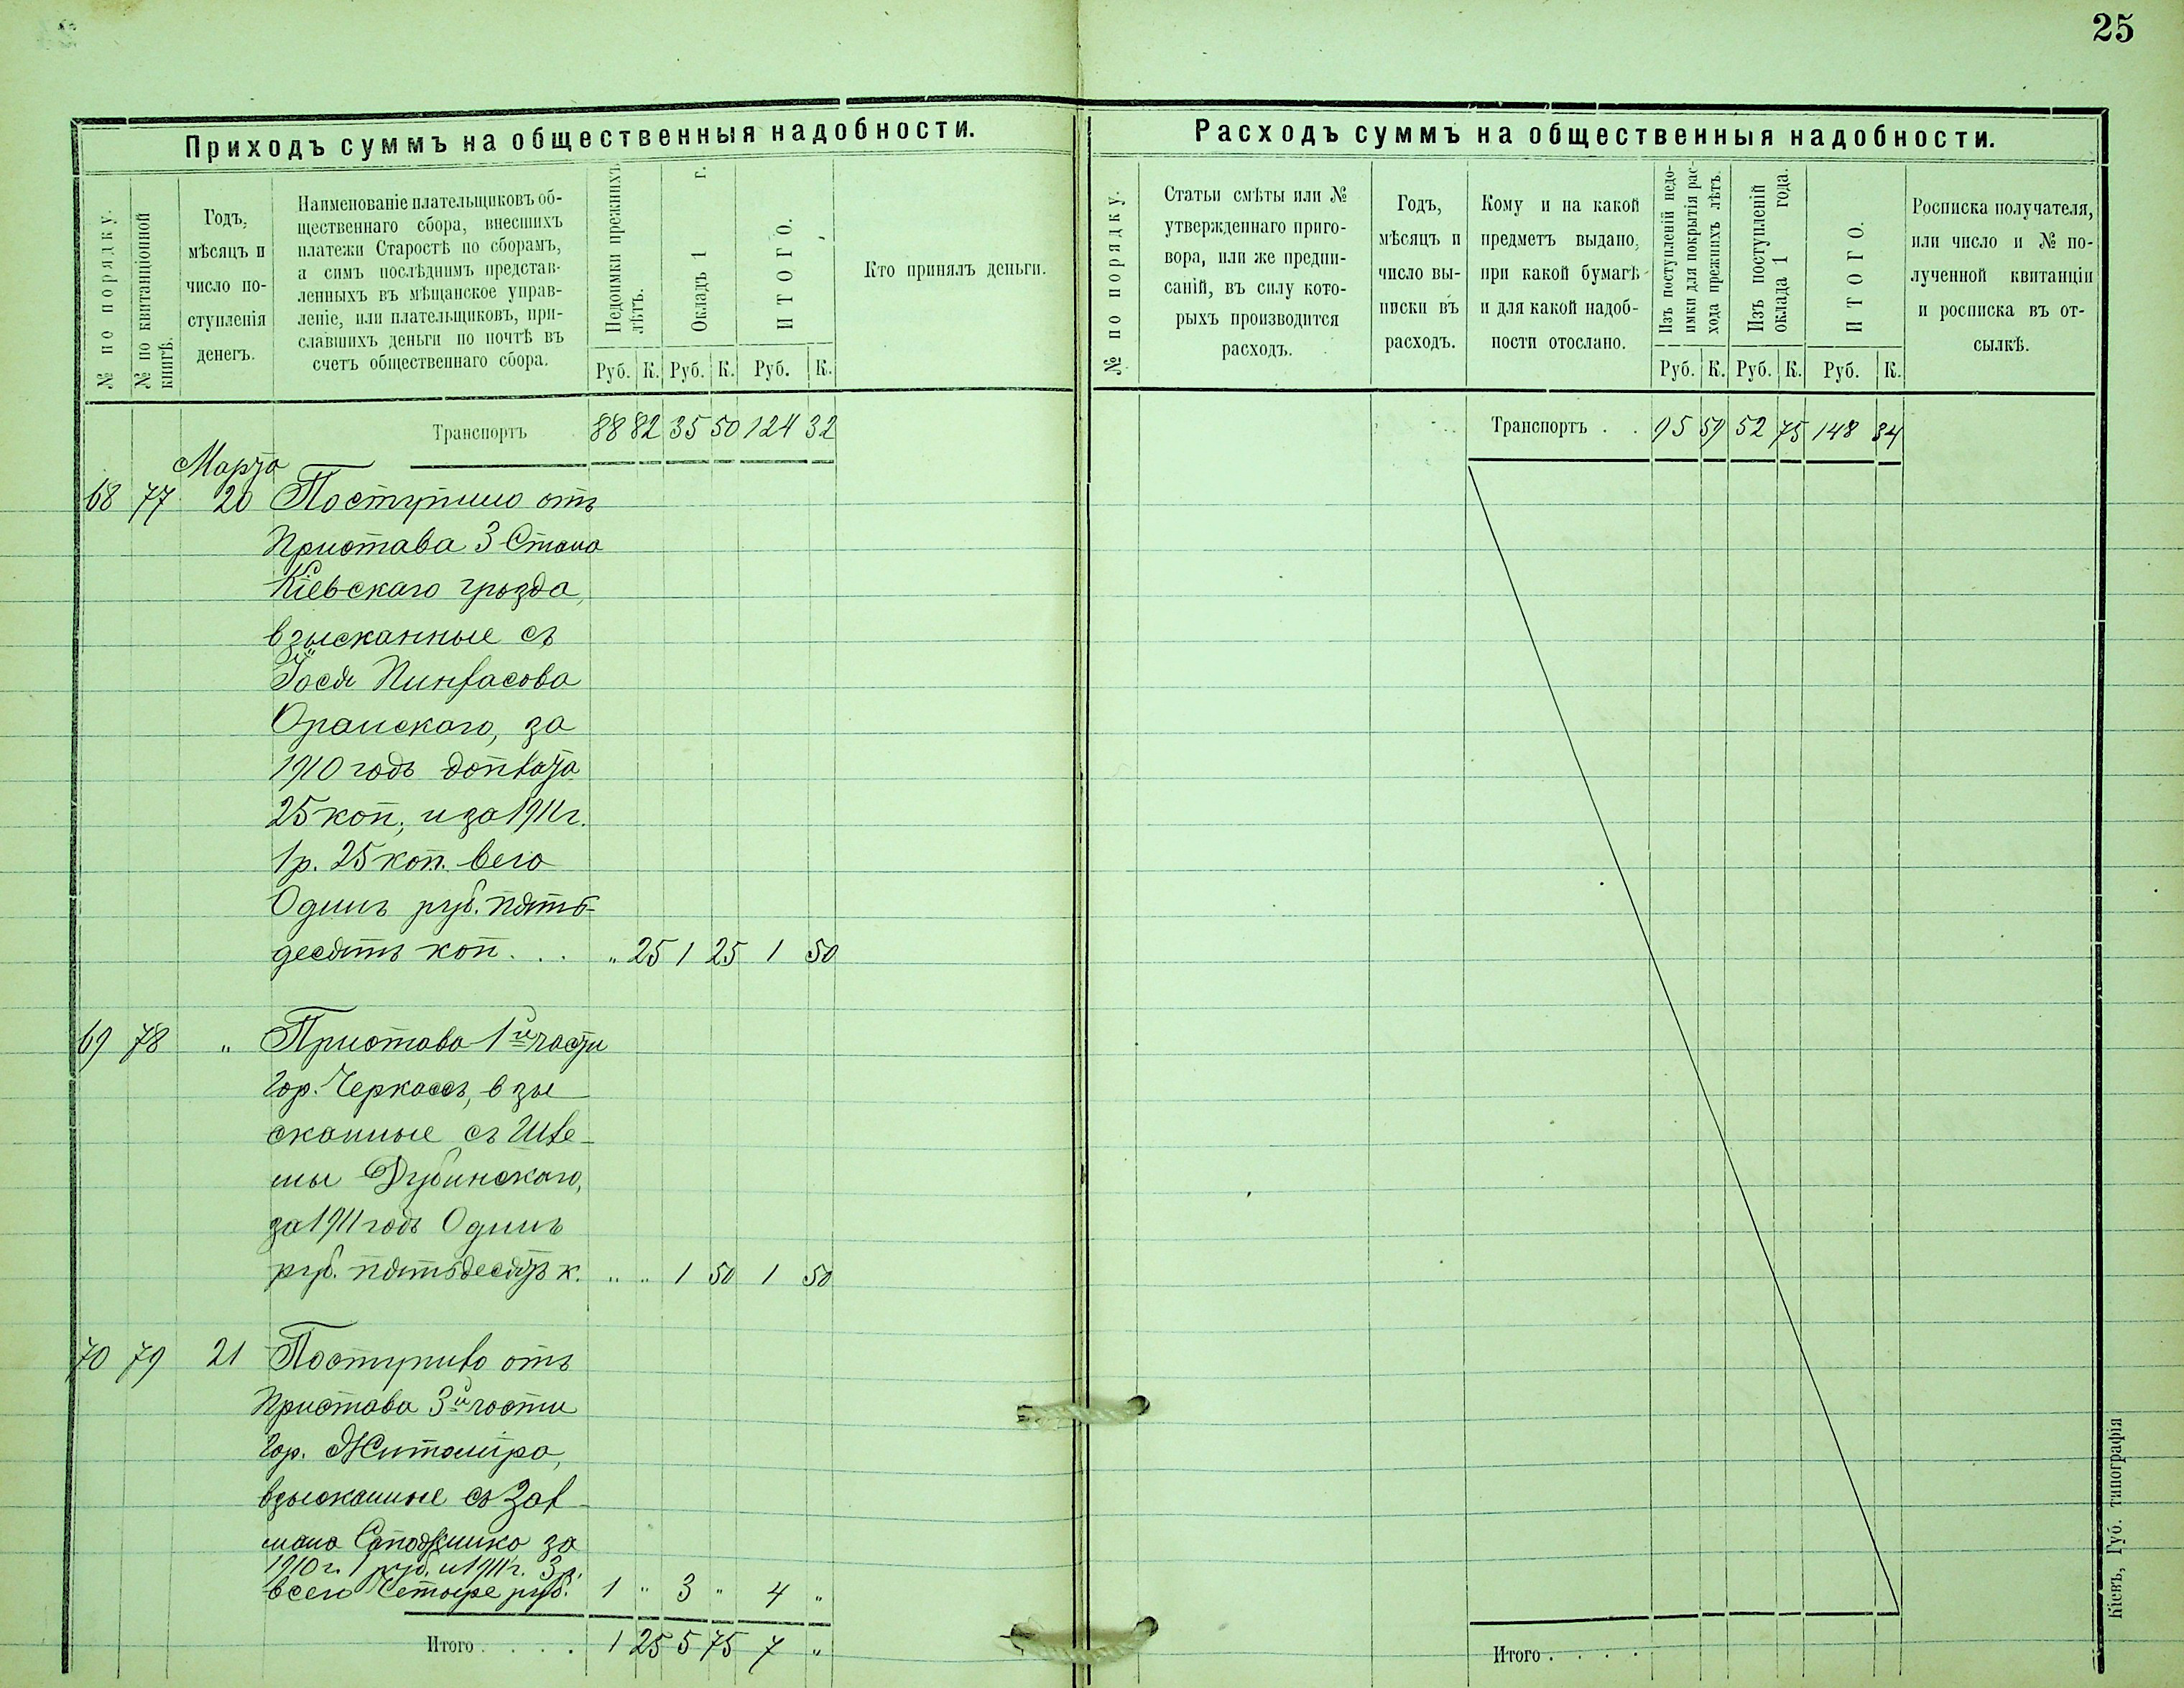 25
Приходъ суммъ на общественныя надобности.
№ по порядку.
№ по квитанціонной
книгѣ.
Годъ,
мѣсяцъ и
число по-
ступленія
денегъ.
Наименованіе плательщиковъ об-
щественнаго сбора, внесшихъ
платежи Старостѣ по сборамъ,
а симъ послѣднимъ представ-
ленныхъ въ мѣщанское управ-
леніе, или плательщиковъ, при-
славшихъ деньги по почтѣ въ
счетъ общественнаго сбора.
Недоимки прежнихъ
лѣтъ.
Окладъ 1 г.
ИТОГО.
Руб. К. Руб. К. Руб. К.
Кто принялъ деньги.
Транспортъ 88 82 35 50 124 32
Марта
68 77 20 Поступило отъ
Пристава 3 Стана
Кіевскаго уѣзда,
взысканные съ
Іося Пинхасова
Оранскаго, за
1910 годъ доплата
25 коп., и за 1911 г.
1 р. 25 коп. всего
Одинъ руб. пять-
десятъ коп... „ 25 1 25 1 50
69 78 „ Пристава 1й части
Гор. Черкассъ, взы
сканные съ Шле-
мы Дубинскаго,
за 1911 годъ Одинъ
руб. пятьдесятъ к. „ „ 1 50 1 50
70 79 21 Поступило отъ
Пристава 3й части
Гор. Житоміра,
взысканные съ Зал-
мана за
1910 г. 1 руб. и 1911 г. 3 р.
всего Четыре руб. 1 „ 3 „ 4 „
Итого.... 1 25 5 75 7 „
Расходъ суммъ на общественныя надобности.
№ по порядку.
Статьи смѣты или №
утвержденнаго приго-
вора, или же предпи-
саній, въ силу кото-
рыхъ производится
расходъ.
Годъ,
мѣсяцъ и
число вы-
писки въ
расходъ.
Кому и на какой
предметъ выдано,
при какой бумагѣ
и для какой надоб-
ности отослано.
Изъ поступленій недо-
имки для покрытія рас-
хода прежнихъ лѣтъ.
Изъ поступленій
оклада 1 года.
ИТОГО.
Руб. К. Руб. К. Руб. К.
Росписка получателя,
или число и № по-
лученной квитанціи
и росписка въ от-
сылкѣ.
Транспортъ . . 95 59 52 75 148 34
Итого....
Кіевъ, Губ. типографія